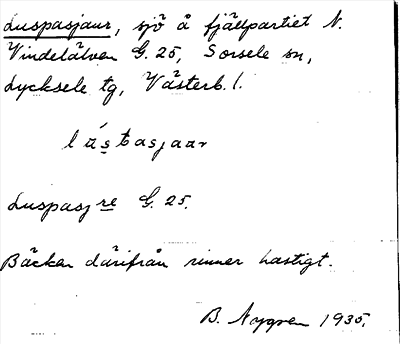 Luspasjaur, sjö å fjällpartiet N.
Vindelälven G. 25, Sorsele sn,
Lycksele tg, Västerb. l.
lústasjaar
Luspasjre G. 25.
Bäcken därifrån rinner hastigt.
B. Nygren 1935.